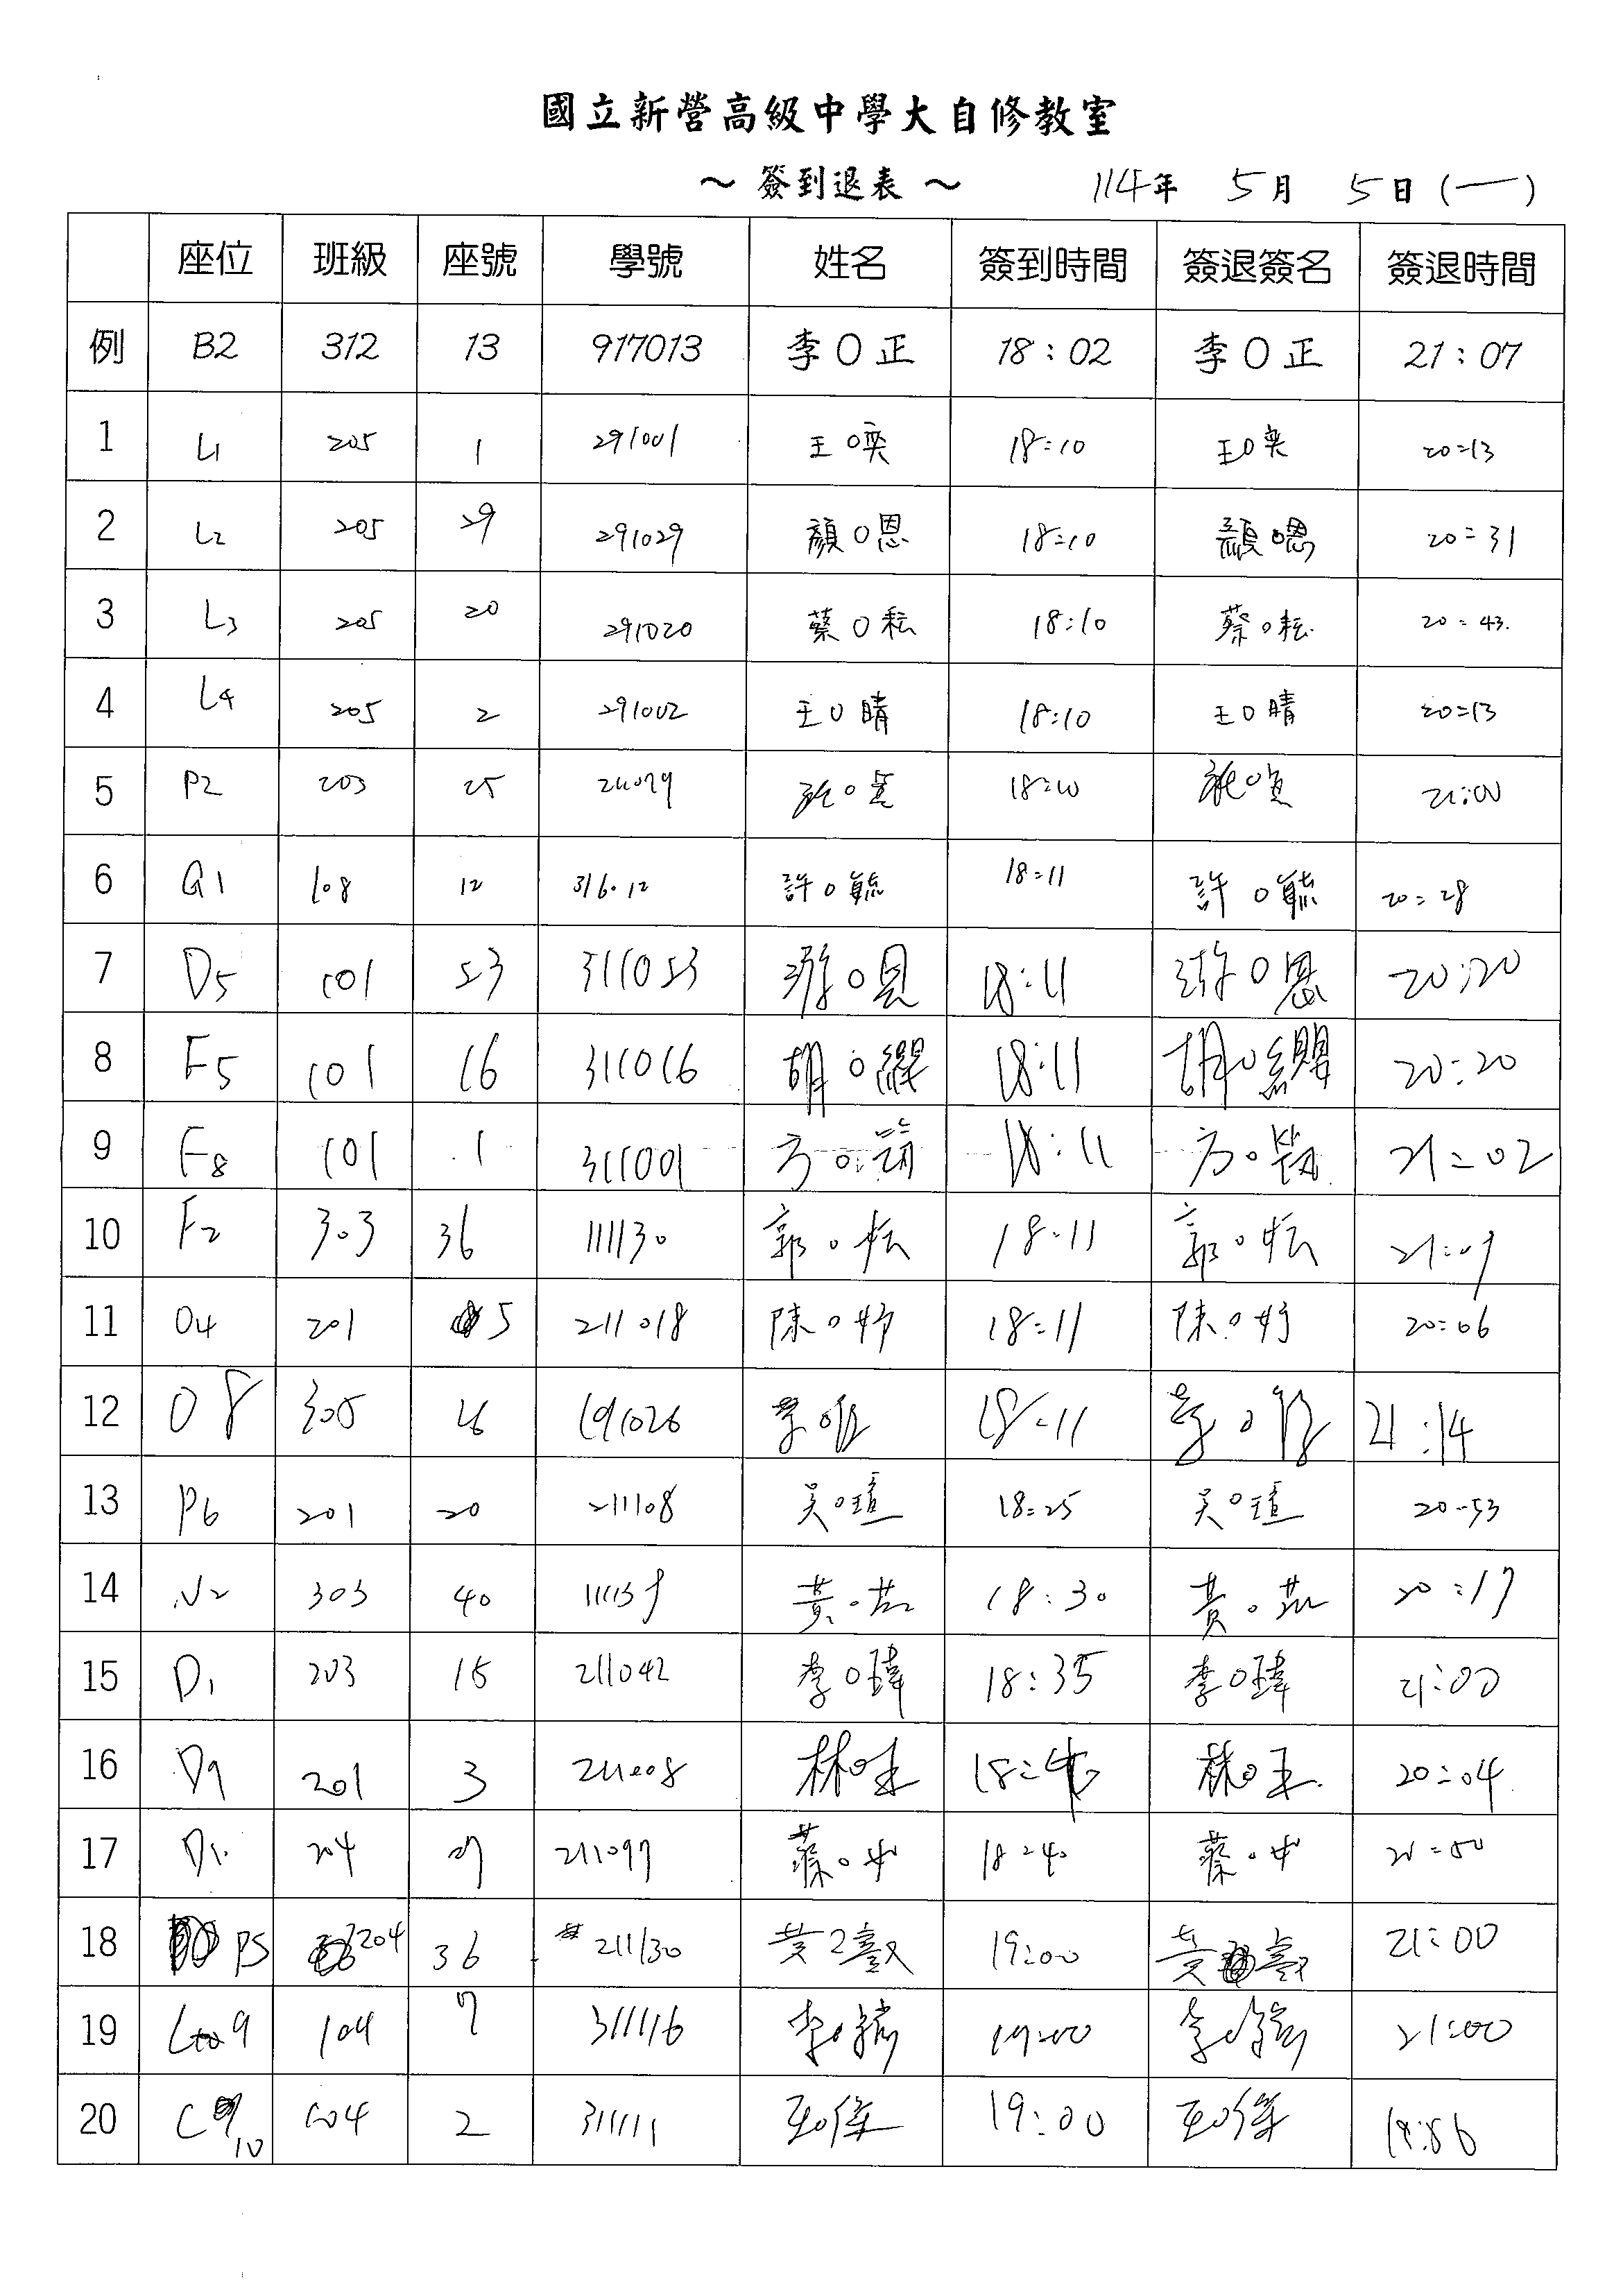 國立新營高級中學大自修教室
～ 簽到退表 ～ 114年 5月 5日 (一)
座位 班級 座號 學號 姓名 簽到時間 簽退簽名 簽退時間
例 B2 312 13 917013 李O正 18:02 李O正 21:07
1 L1 205 1 291001 王O奕 18:10 王O奕 20:13
2 L2 205 29 291029 顏O恩 18:10 顏O恩 20:31
3 L3 205 20 291020 蔡O耘 18:10 蔡O耘 20:43
4 L4 205 2 291002 王O晴 18:10 王O晴 20:13
5 P2 203 25 18:10 21:00
6 G1 108 12 316012 許O毓 18:11 許O毓 20:28
7 D5 101 53 311053 游O恩 18:11 游O恩 20:20
8 F5 101 16 311016 胡O纓 18:11 胡O纓 20:20
9 F8 101 1 311001 方O 18:11 方O 21:02
10 F2 303 36 111130 郭O 18:11 郭O 21:09
11 O4 201 5 211018 陳O妤 18:11 陳O妤 20:06
12 O8 305 26 191026 李O 18:11 李O 21:14
13 P6 201 20 211108 吳O瑄 18:25 吳O瑄 20:53
14 N2 303 40 111139 黃O 18:30 黃O 20:17
15 D1 203 15 211042 李O瑋 18:35 李O瑋 21:00
16 D9 201 3 211008 林O 18:40 林O 20:04
17 204 211097 蔡O 18:40 蔡O
18 P5 204 36 211130 黃 19:00 黃 21:00
19 104 7 311116 李O 19:00 李O 21:00
20 C10 104 2 311111 王O 19:00 王O 19:56